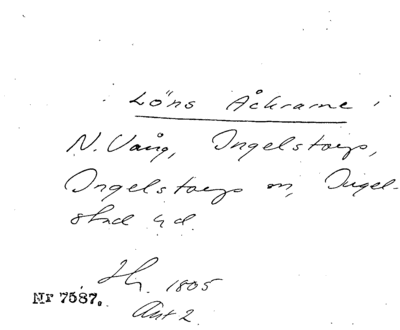 Löns Åkrarne i
N. Vång, Ingelstorps,
Ingelstorps sn, Ingel-
stad hd.
Sk. 1805
Nr 7587.
Akt 2